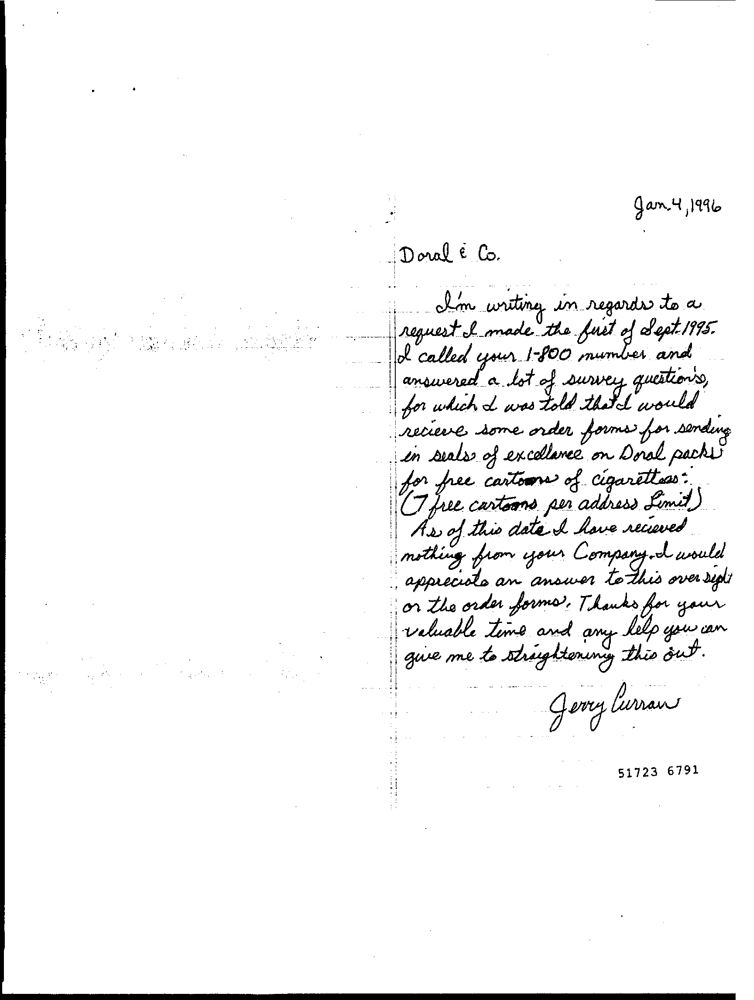 Jan. 4, 1996
Doral & Co.
I'm writing in regards to a
request I made the first of Sept. 1995.
I called your 1-800 number and
answered a lot of survey question's,
for which I was told that I would
recieve some order forms for sending
in seals of excellance on Doral packs
for free cartoons of cigarettes:
(7 free cartoons per address Limit)
As of this date I have recieved
nothing from your Company. I would
appreciate an answer to this over sight
or the order forms. Thanks for your
valuable time and any help you can
give me to straightening this out.
Jerry Curran
51723 6791